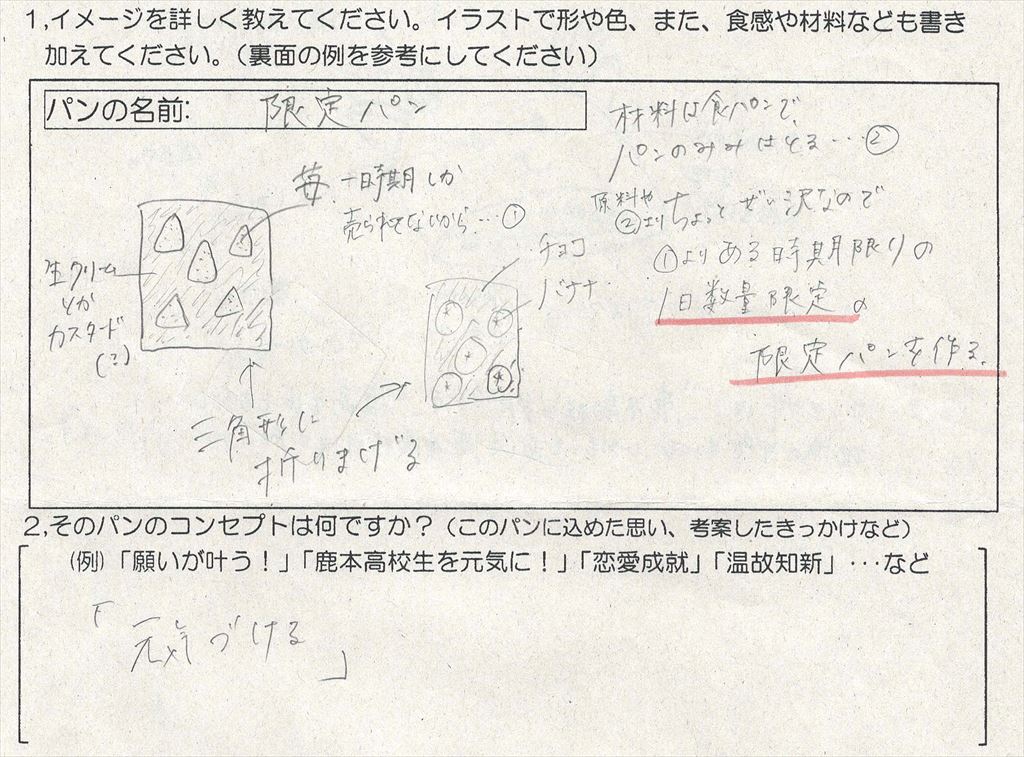 1,イメージを詳しく教えてください。イラストで形や色、また、食感や材料なども書き
加えてください。(裏面の例を参考にしてください)
パンの名前: 限定パン
材料は食パンで、
パンのみみはとる…②
苺 一時期しか
売られてないから…①
原料や
②よりちょっとぜい沢なので
①よりある時期限りの
1日数量限定の
限定パンを作る。
生クリーム
とか
カスタード
(?)
チョコ
バナナ
三角形に
折りまげる
2,そのパンのコンセプトは何ですか?(このパンに込めた思い、考案したきっかけなど)
(例)「願いが叶う!」「鹿本高校生を元気に!」「恋愛成就」「温故知新」・・・など
「元気づける」